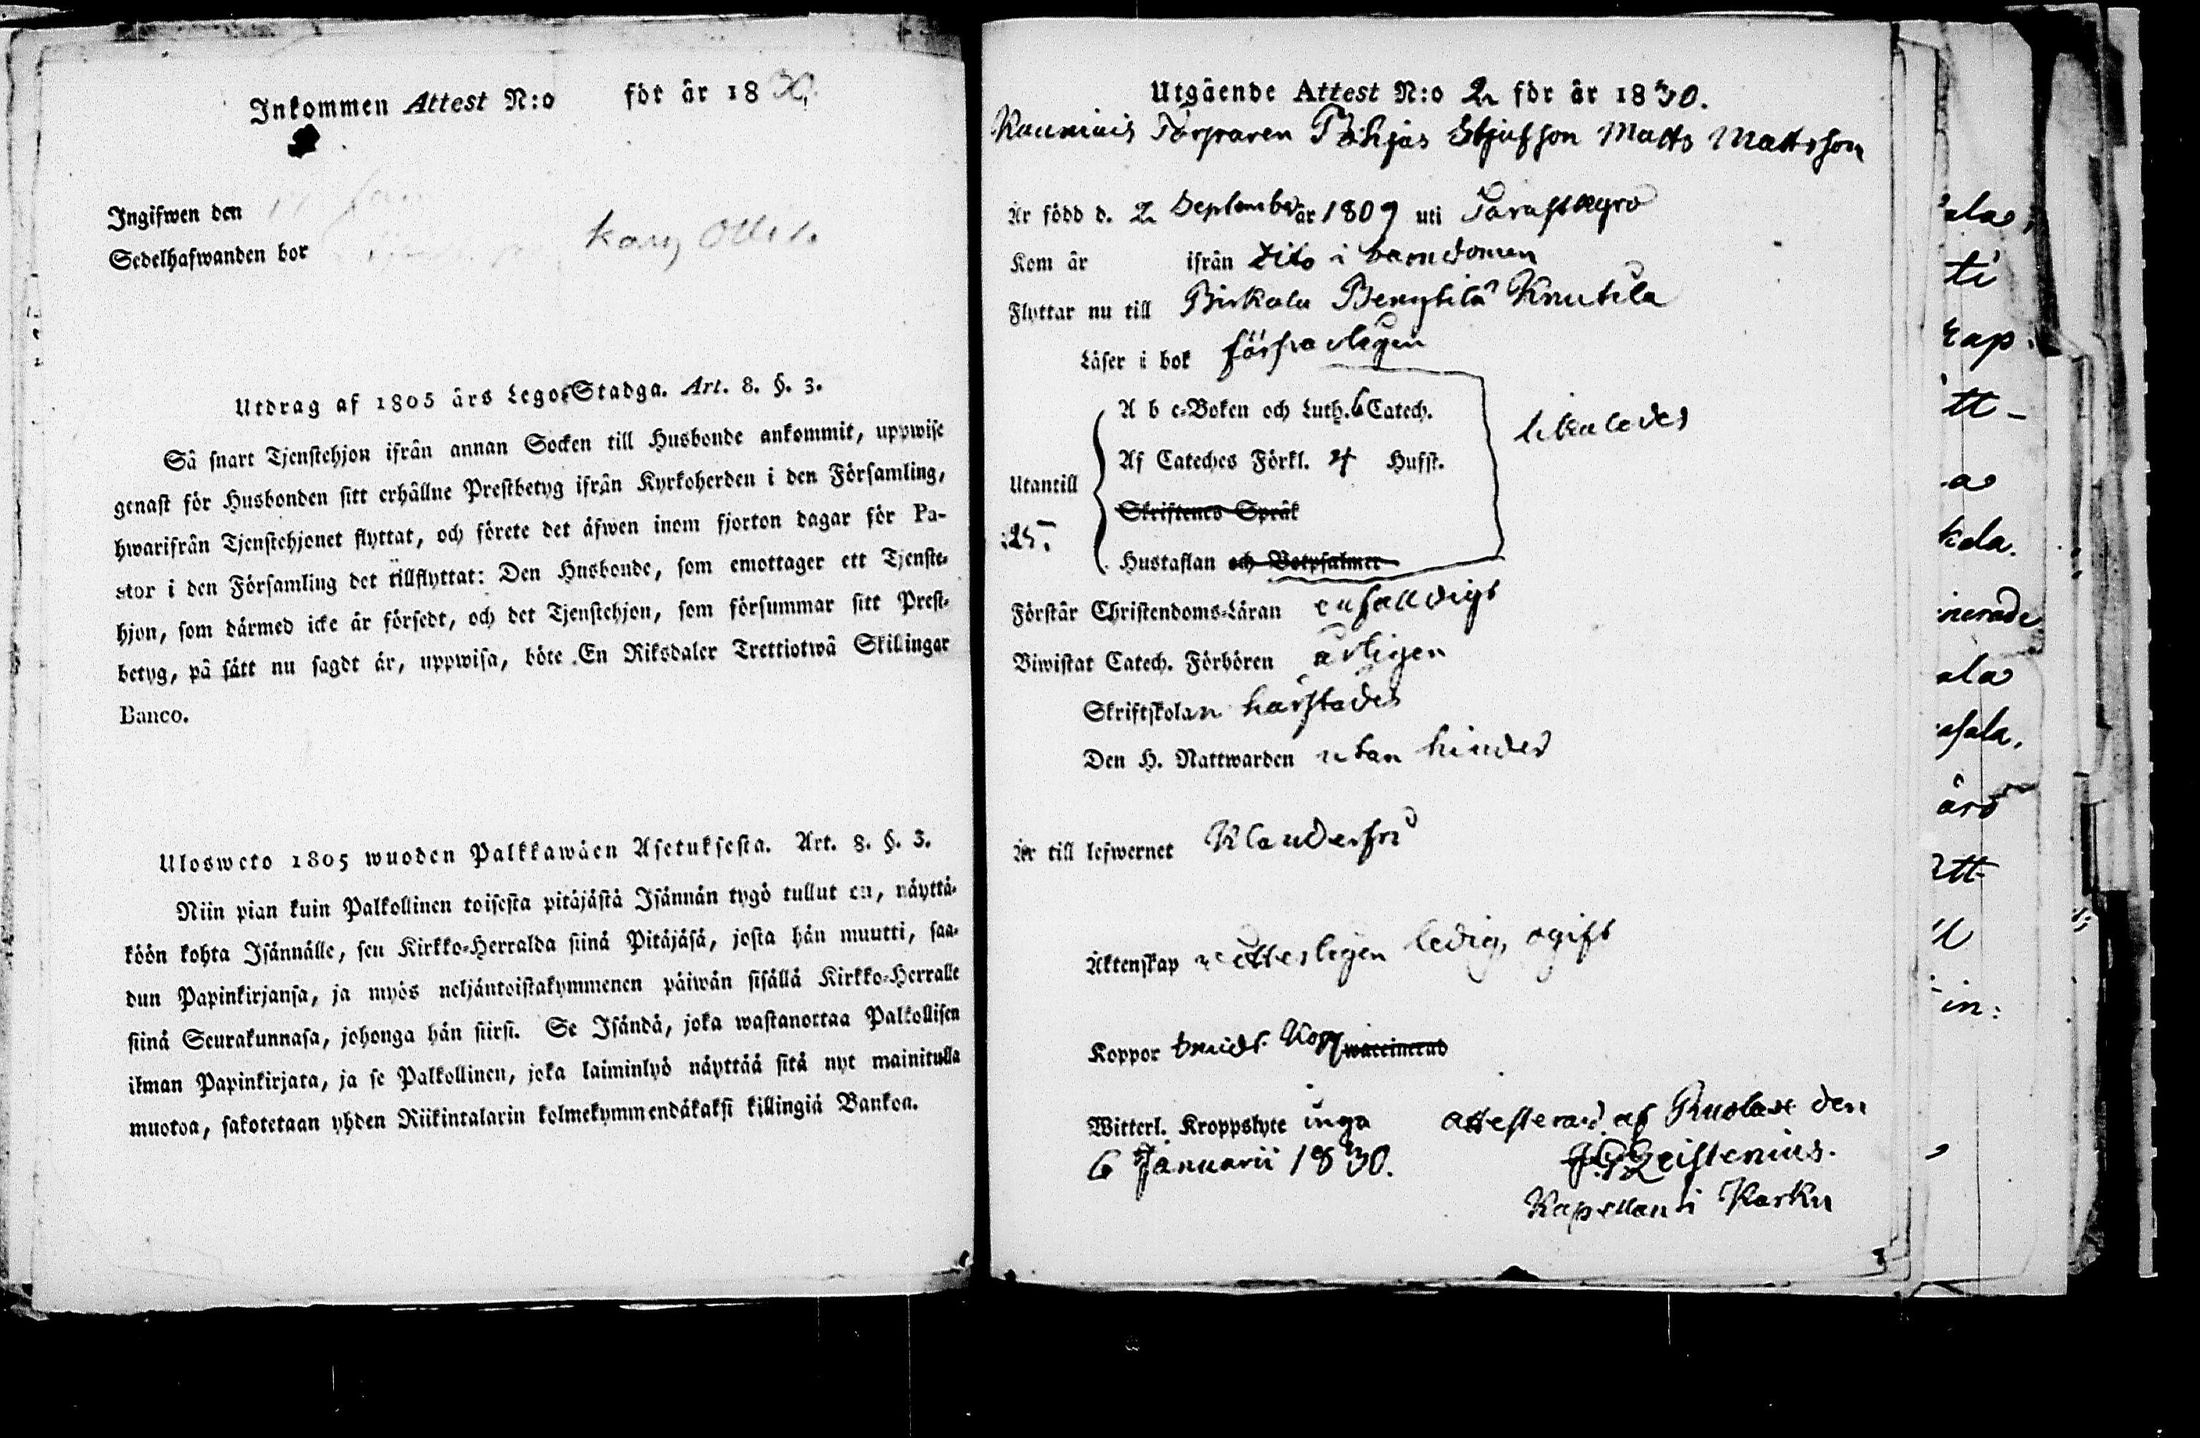 Inkommen Attest N:o för år 1830.
Ingifwen den 17 Jan
Sedelhafwanden bor
Utdrag af 1805 års Lego-Stadga. Art. 8. §. 3.
Så snart Tjenstehjon ifrån annan Socken till Husbonde ankommit, uppwise
genast för Husbonden sitt erhållne Prestbetyg ifrån Kyrkoherden i den Församling,
hwarifrån Tjenstehjonet flyttat, och förete det äfwen inom fjorton dagar för Pa-
stor i den Församling det tillflyttat: Den Husbonde, som emottager ett Tjenste-
hjon, som därmed icke är försedt, och det Tjenstehjon, som försummar sitt Prest-
betyg, på sätt nu sagdt är, uppwisa, böte En Riksdaler Trettiotwå Skillingar
Banco.
Ulosweto 1805 wuoden Palkkawäen Asetuksesta. Art. 8. §. 3.
Niin pian kuin Palkollinen toisesta pitäjästä Isännän tygö tullut on, näyttä-
köön kohta Isännälle, sen Kirkko-Herralda siinä Pitäjäsä, josta hän muutti, saa-
dun Papinkirjansa, ja myös neljäntoistakymmenen päiwän sisällä Kirkko-Herralle
siinä Seurakunnasa, johonga hän siirsi. Se Isändä, joka wastanottaa Palkollisen
ilman Papinkirjata, ja se Palkollinen, joka laiminlyö näyttää sitä nyt mainitulla
muotoa, sakotetaan yhden Riikintalarin kolmekymmendäkaksi killingiä Bankoa.
Utgående Attest N:o 2 för år 1830.
Kauniais Torparen Pohjas Styfson Matts Mattsson
Är född d. 2 September år 1809 uti
Kom år ifrån dito i barndomen
Flyttar nu till Birkala Bengtilä Knutila
Läser i bok försvarligen
A b c-Boken och Luth. 6 Catech.
likaledes
Af Cateches Förkl. 4 Husst.
Utantill
Skriftenes Språk
25.
Hustaflan och Botpsalmer
Förstår Christendoms-Läran enfalldigt
Biwistat Catech. Förhören årligen
Skriftskolan härstädes
Den H. Nattwarden utan hinder
Är till lefwernet Klanderfri
Äktenskap wetterligen ledig, ogift
Koppor Kopp waccinerad
Witterl. Kroppslyte inga attesterad af den
6 Januarii 1830.
Kapellan i Karku